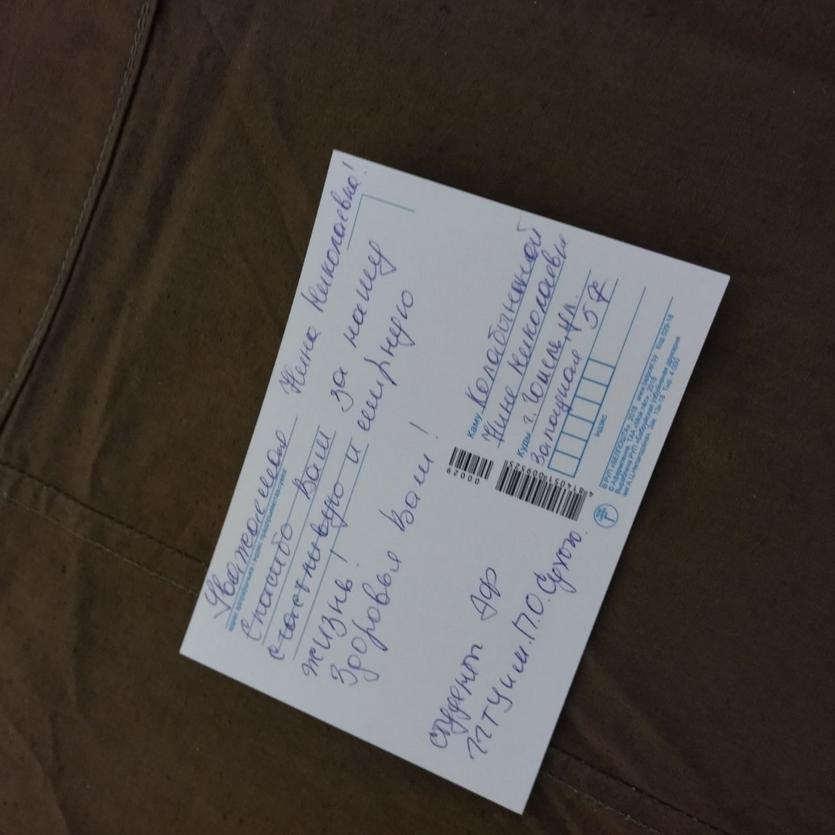 Уважаемая Нина Николаевна!
спасибо Вам за нашу
счастливую и мирную
жизнь!
Здоровья Вам!
студент АФ
ГГТУ им. П.О. Сухого.
Кому Колабычиной
Нине Николаевне
Куда г. Гомель, ул.
Западная 57
Индекс
00029
4814051009525